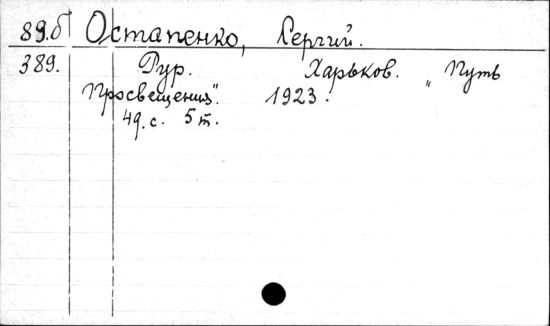 89.б Остапенко, Сергий.
389. Гур. Харьков. „Путь
Просвещения". 1923.
49. с. 5 т.